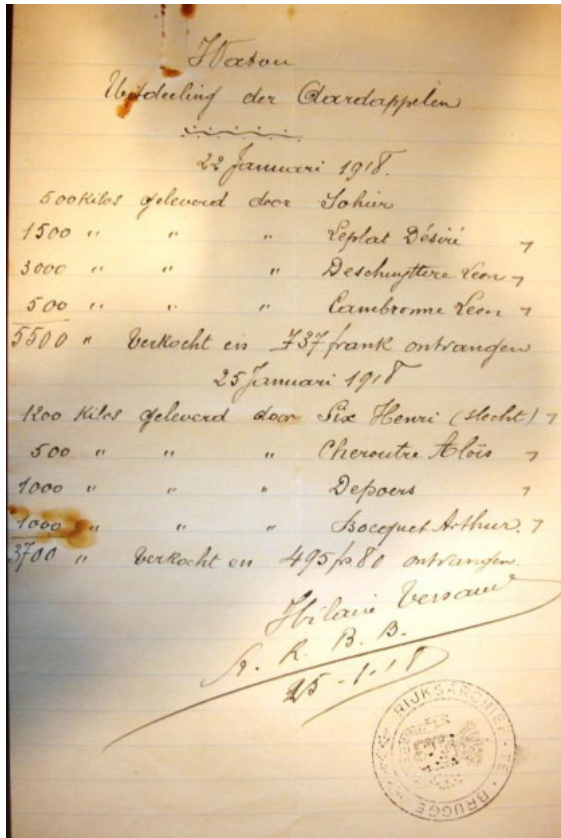 Watou
Uitdeeling der Aardappelen
22 Januari 1918.
500 Kilos geleverd door Sohier
1500 " " " Leplat Désiré 7
3000 " " " Deschuyttere Leon 7
500 " " " Cambronne Leon 7
5500 " Verkocht en 737 frank ontvangen
25 Januari 1918
1200 Kilos geleverd door Six Henri (slecht) 7
500 " " " Cheroutre Aloïs 7
1000 " " " Depoers 7
1000 " " " Bocquet Arthur. 7
3700 " Verkocht en 495 frs 80 ontvangen.
Hilaire
R. B. B.
25-1-18
RIJKSARCHIEF · TE · BRUGGE